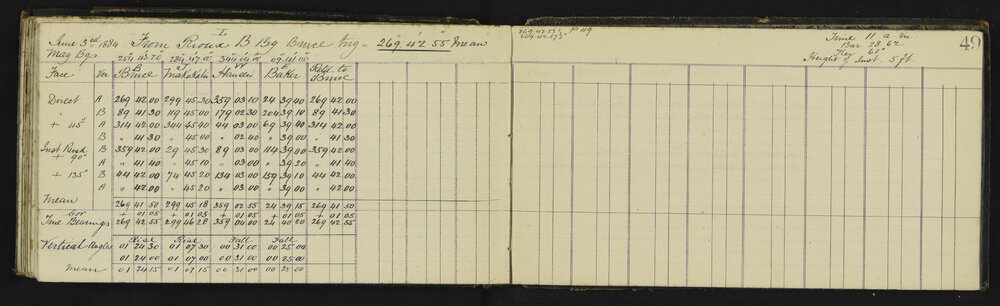 I
June 3rd 1884 From Rioux B Bg Bruce Trig - 269° 42' 55" Mean
Mag Bg 254 45.20" 284.47.00 344.04.00 09.41.00
Face Ver Bruce Makakaho Handen Baker Retd. to Bruce
Direct A 269 42.00 299 45.30 359 03.10 24 39.40 269 42.00
" B 89 41.30 119 45.00 179 02.30 204 39.10 89 41.30
+ 45° A 314 42.00 344 45.40 44 03.00 69 39.40 314 42.00
B " 41.30 " 45.00 " 02.40 " 39.00 " 41.30
Inst. Revsd + 90° B 359 42.00 29 45.30 89 03.00 114 39.00 359 42.00
A " 41.40 " 45.10 " 03.00 " 39.20 " 41.40
+ 135° B 44 42.00 74 45.20 134 03.00 159 39.10 44 42.00
A " 42.00 " 45.20 " 03.00 " 39.00 " 42.00
Mean 269 41.50 299 45.18 359 02.55 24 39.15 269 41.50
Cor + 01.05 + 01.05 + 01.05 + 01.05 + 01.05
True Bearings 269 42 55 299 46 28 359 04.00 24 40 20 269 42.55
Rise Rise Fall Fall
Vertical Angles 01 24.30 01 07.30 00 31.00 00 25.00
01 24.00 01 07.00 00 31.00 00 25.00
Mean 01 24.15 01 07.15 00 31.00 00 25.00
269.42.53½ P 49
269.42.57½
49
Time 11 a.m
Bar 28.62
Ther 61°
Height of Inst. 5 ft.